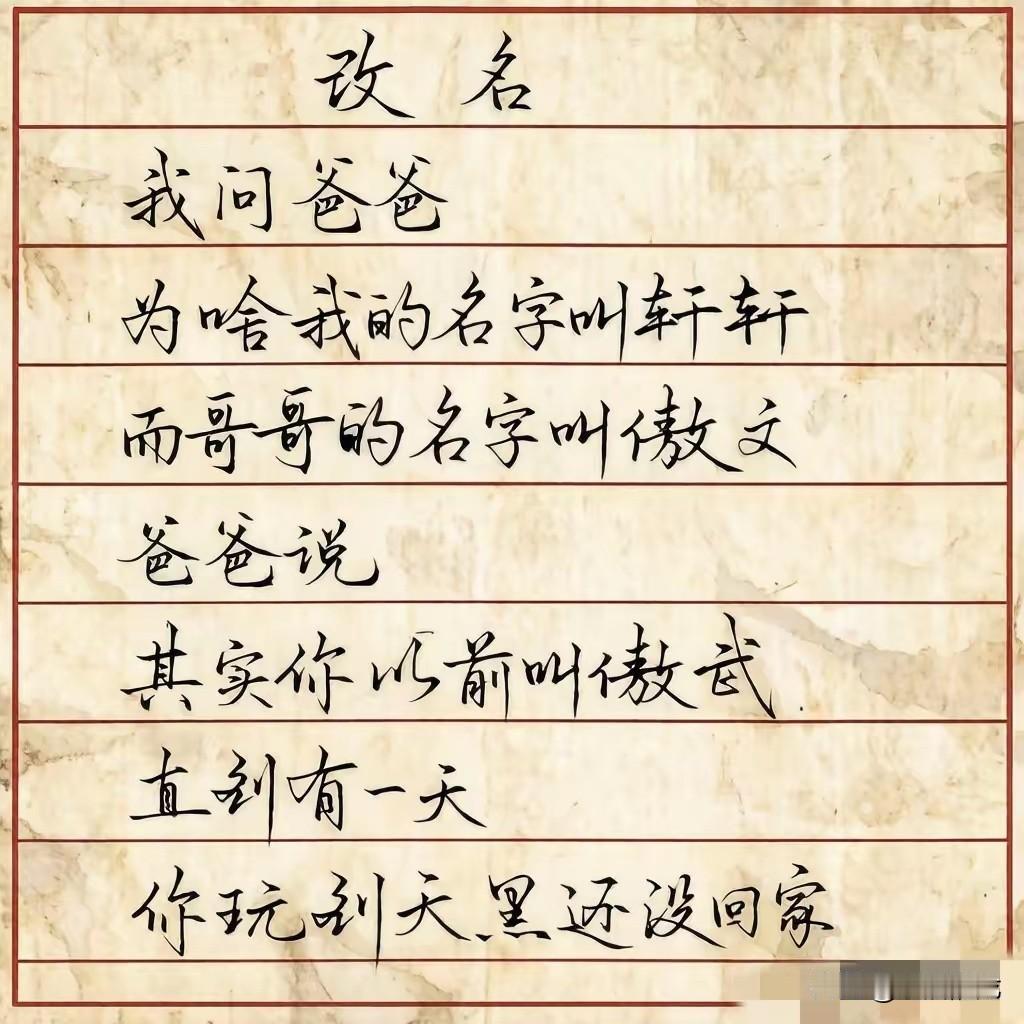 改名
我问爸爸
为啥我的名字叫轩轩
而哥哥的名字叫傲文
爸爸说
其实你以前叫傲武.
直到有一天
你玩到天黑还没回家